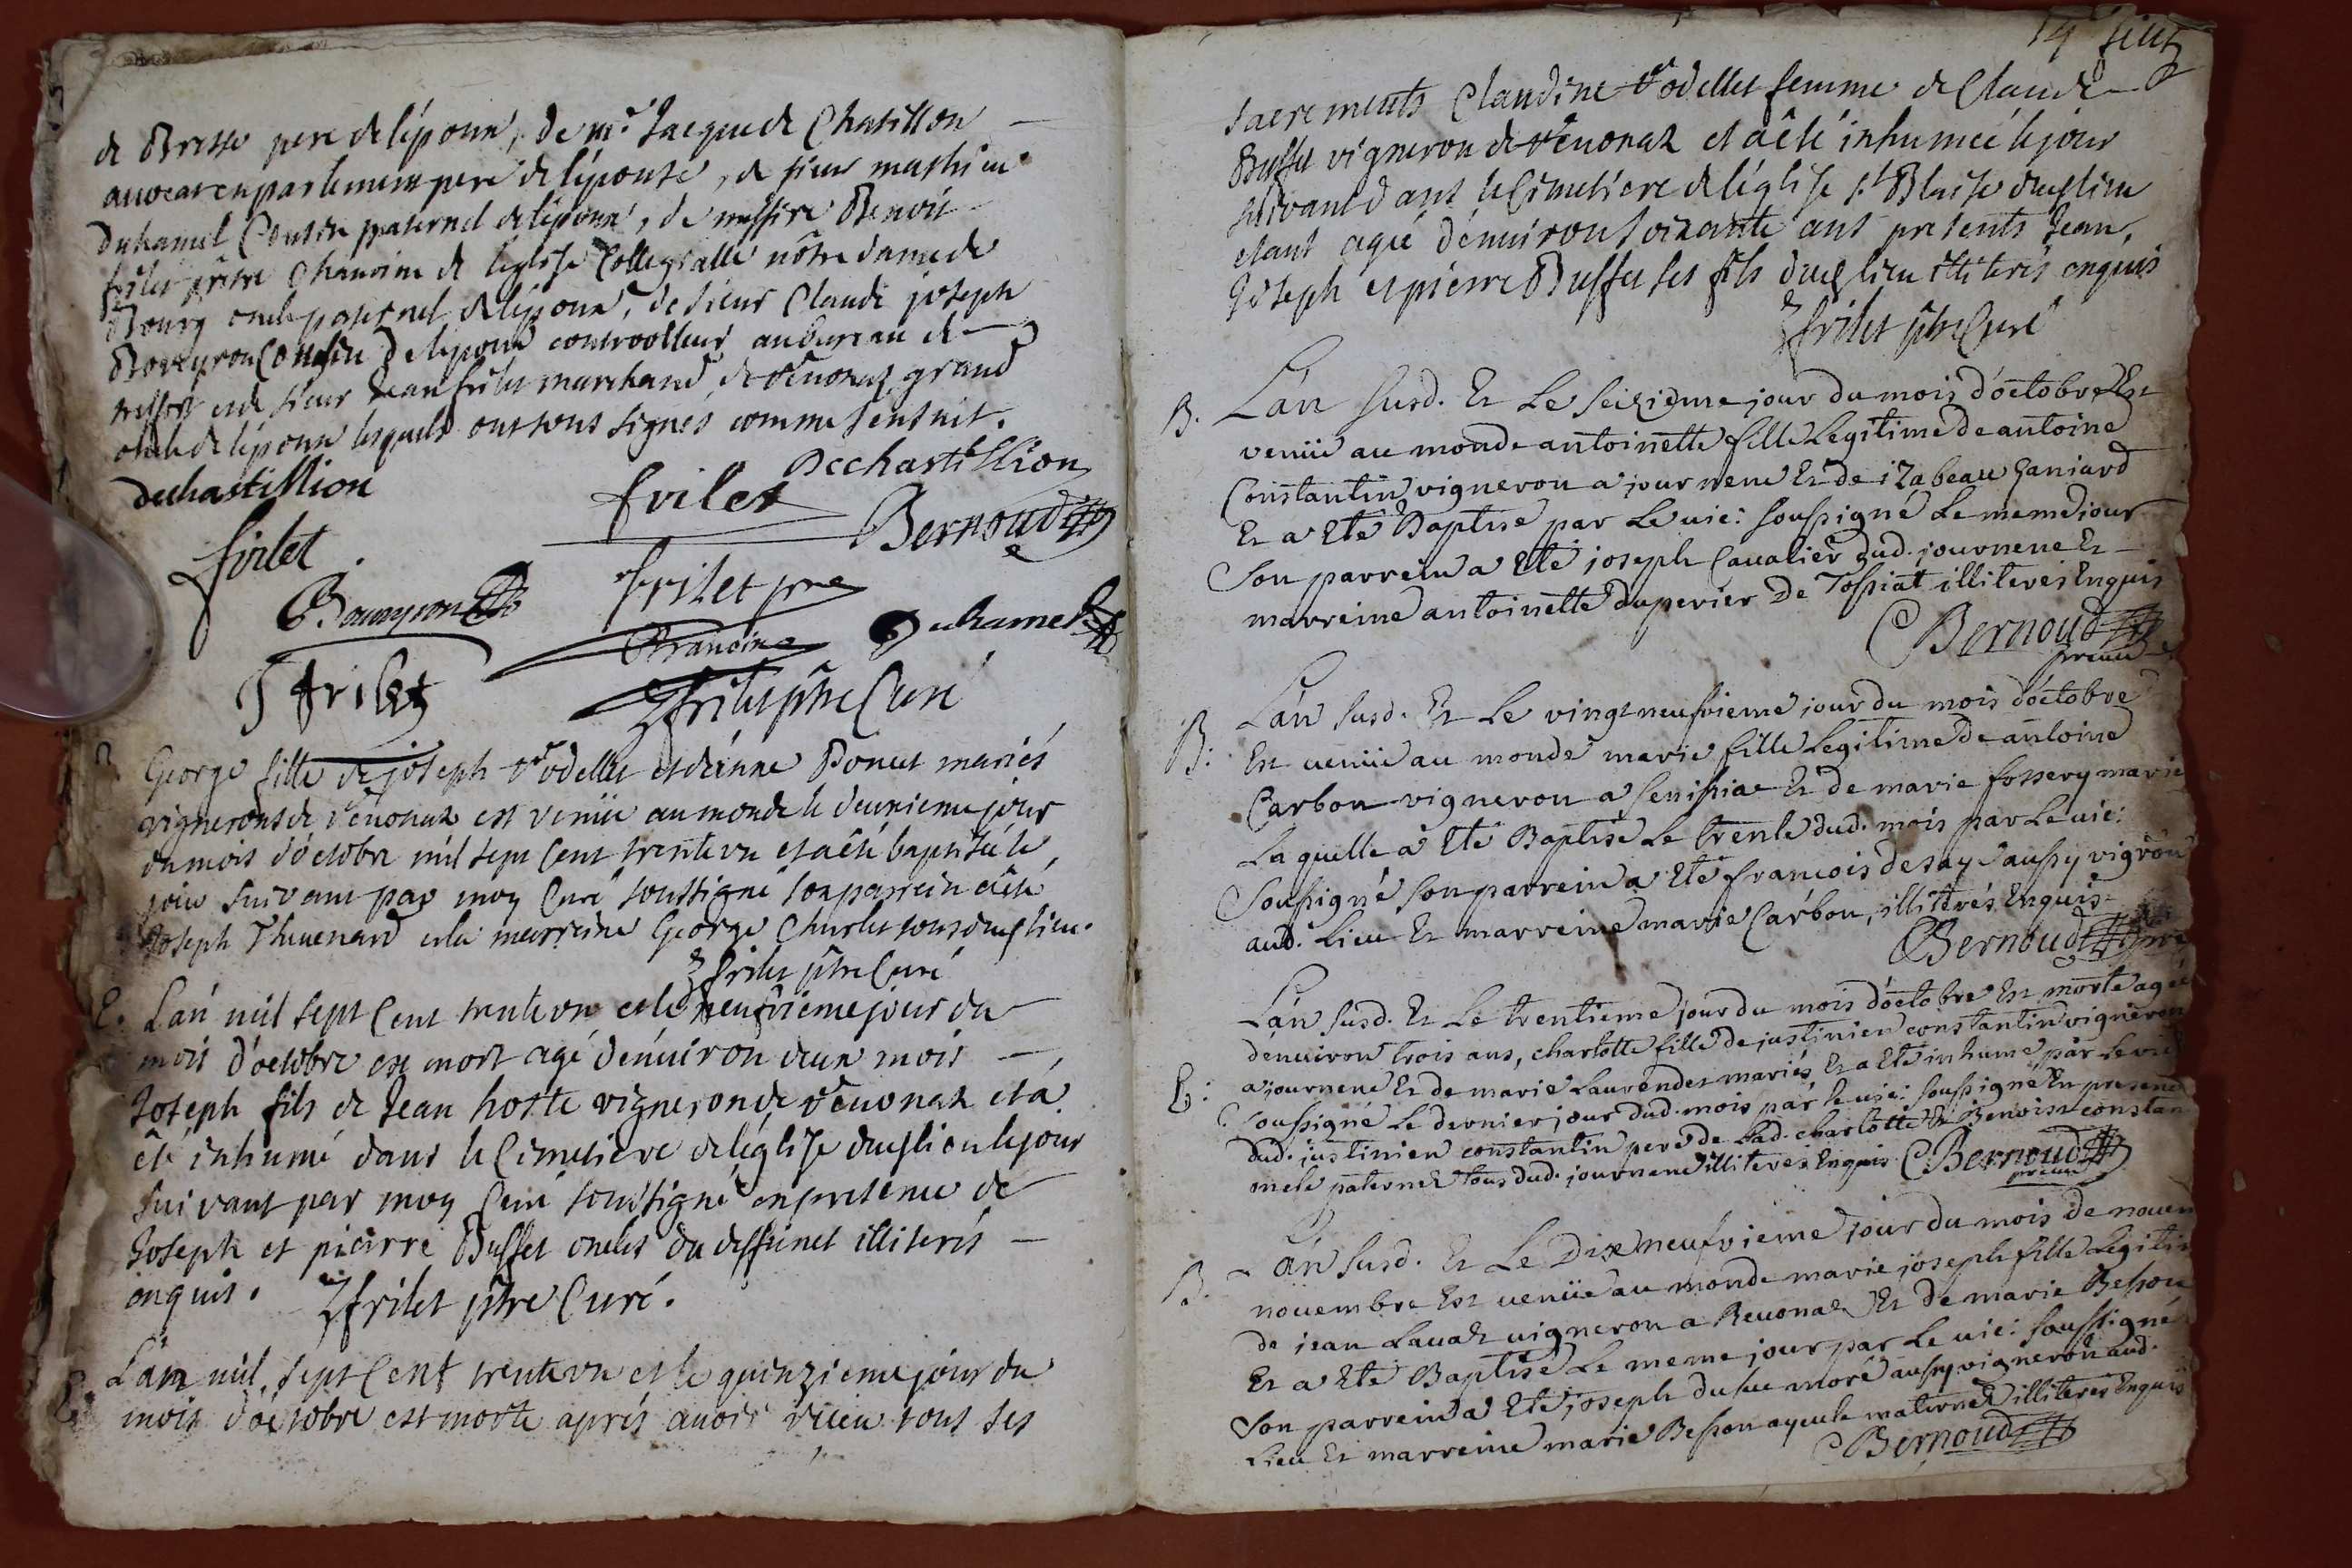 de Bresse pere de lépoux, de mr. Jacque de Chatillon
auocat en parlement pere de lépouse, de sieur mathieu
duhamel Cousin paternel de lépoux, de messire Benoit
frilet prêtre Chanoine de léglise Collegialle nôtre dame de
Bourg oncle paternel de lépoux, de sieur Claude joseph
Boveyron Cousin de lépoux controolleur au bureau de
treffort et de sieur Jean frilet marchand de reuonaz grand
oncle de lépoux lesquels ont tous signés comme sensuit.
dechastillion
frilet
Dechastillion
frilet
Bernoud
frilet pre
Chanoine
Duhamel
J frilet
frilet ptre Curé
George fille de joseph Vodellet et déanne Poncet mariés
vignerons de reuonaz est venüe au monde le deuxieme jour
du mois d'octobre mil sept Cent trente vn et a êté baptisée le
jour suivant par moy Curé soussigné son parrein a êté
Joseph Thevenard et la marreine George Charlet tous dud lieu.
frilet ptre Curé
E. L'an mil sept Cent trente vn et le neufvieme jour du
mois d'octobre est mort agé d'énuiron deux mois
Joseph fils de Jean hoste vigneron de reuonaz et a
êté inhumé dans le Cimetiere de léglise dud lieu le jour
suivant par moy Curé soussigné en presence de
Joseph et pierre Buffet oncles du deffunct illiterés
enquis. frilet ptre Curé.
E. L'an mil sept Cent trente vn et le quinzieme jour du
mois d'octobre est morte aprés auoir receu tous ses
sacrements Claudine Vodellet femme de Claude
Buffet vigneron de reuonaz et a êté inhumeé le jour
suivant dans le Cimetiere de léglise st Blaise dud lieu
etant ageé d'énuiron soixante ans presents Jean,
Joseph et pierre Buffet ses fils dud lieu illiterés enquis
frilet ptre Curé
B. L'an susd. Et Le seizieme jour du mois d'octobre Est
venüe au monde antoinette fille Legitime de antoine
Constantin vigneron a journene Et de izabeau Janiard
Et a Eté Baptise par Le vic: soussigné Le meme jour
Son parrein a Eté joseph Caualier dud. journene Et
marreine antoinette duperier de Tossiat illiterés Enquis
Bernoud
B. L'an susd. Et Le vingt neufvieme jour du mois d'octobre
Est venüe au monde marie fille Legitime de antoine
Carbon vigneron a senissia Et de marie fossery marié
Laquelle a Eté Baptise Le trente dud. mois par Le vic:
Soussigné son parrein a Eté francois desaye aussy vigron
aud. Lieu Et marreine marie Carbon, illiterés Enquis
Bernoud
L'an susd. Et Le trentieme jour du mois d'octobre Est morte ageé
E: d'enuiron trois ans, charlotte fille de justinien constantin vigneron
a journene Et de marie Laurendet mariés Et a Eté inhumé par Le vic
soussigné Le dernier jour dud. mois par le vic: soussigné En presence
dud. justinien constantin pere de Lad. charlotte Et Benoist constan
oncle paternel tous dud. journene illiterés Enquis. Bernoud
B. L'an susd. Et Le Dix neufvieme jour du mois de nouem
nouembre Est venüe au monde marie joseph fille Legitim
de jean Lauaz vigneron a Reuonaz Et de marie Besson
Et a Eté Baptise Le meme jour par Le vic: soussigné
Son parrein a Eté joseph dufue moré aussy vigneron aud.
Lieu Et marreine marie Besson ayeule maternel illiterés Enquis
Bernoud